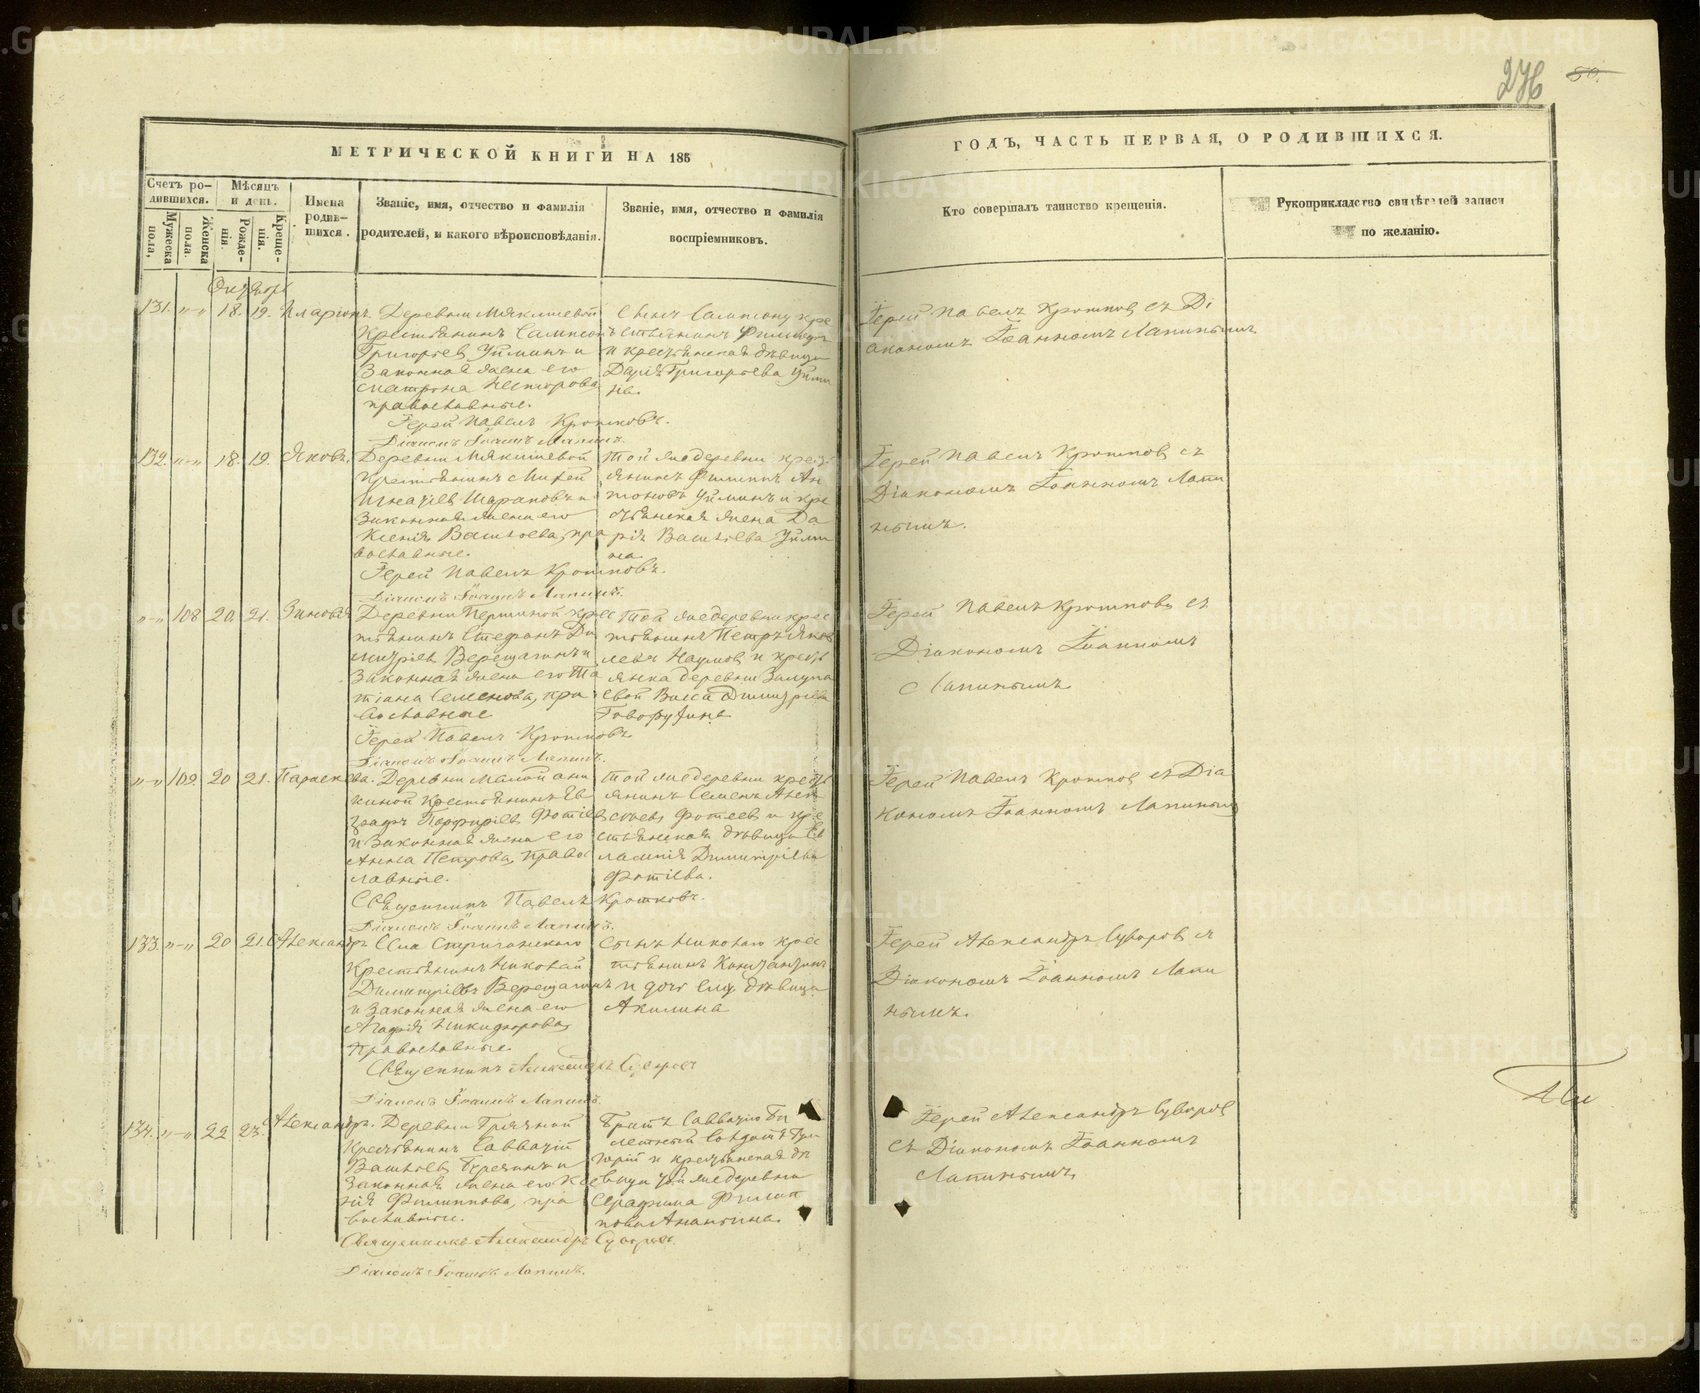 276
80.
МЕТРИЧЕСКОЙ КНИГИ НА 185
ГОДЪ, ЧАСТЬ ПЕРВАЯ, О РОДИВШИХСЯ.
Счетъ ро-
дившихся.
Мужеска
пола,
Женска
пола.
Мѣсяцъ
и день.
Рожде-
нія.
Креще-
нія.
Имена
родив-
шихся.
Званіе, имя, отчество и фамилія
родителей, и какого вѣроисповѣданія.
Званіе, имя, отчество и фамилія
воспріемниковъ.
Кто совершалъ таинство крещенія.
Рукоприкладство свидѣтелей записи
по желанію.
131. 18. 19. Иларіонъ. Деревни
Крестьянинъ Сампсонъ
Григорьевъ Уйминъ и
Законная жена его
Матрона Несторова
православные.
Іерей Павелъ Кротковъ.
Діаконъ Іоаннъ Лапинъ.
Сынъ Сампсону кре
стьянинъ Филиппъ
и крестьянская дѣвица
Дарія Григорьева Уйми
на.
Іерей Павелъ Кротковъ съ Ді
акономъ Іоанномъ Лапинымъ
132. 18. 19. Яковъ. Деревни
Крестьянинъ
Игнатіевъ Шараповъ и
Законная жена его
Ксенія Васильева, пра
вославные.
Іерей Павелъ Кротковъ.
Діаконъ Іоаннъ Лапинъ.
Той же деревни крест
янинъ Филиппъ Ан
тоновъ Уйминъ и кре
стьянская жена Да
рія Васильева Уйми
на.
Іерей Павелъ Кротковъ съ
Діакономъ Іоанномъ Лапи
нымъ.
108 20. 21. Зиновія Деревни Першиной крес
тьянинъ Стефанъ Ди
митріевъ Верещагинъ и
Законная жена его Та
тіана Семенова, пра
вославные
Іерей Павелъ Кротковъ
Діаконъ Іоаннъ Лапинъ.
Той же деревни крес
тьянинъ Петръ Яков
левъ Наумовъ и крест
янка деревни
Васса Димитріева
Іерей Павелъ Кротковъ съ
Діакономъ Іоанномъ
Лапинымъ
109. 20 21. Параскева. Деревни Малой
Крестьянинъ
Порфиріевъ Фотіевъ
и Законная жена его
Анна Петрова, право
славные.
Священникъ Павелъ Кротковъ.
Діаконъ Іоаннъ Лапинъ.
Той же деревни крест
янинъ Семенъ
Фотеевъ и кре
стьянская дѣвица Ев
лампія Димитріева
Фотіева.
Іерей Павелъ Кротковъ съ Діа
кономъ Іоанномъ Лапинымъ
133. 20 21. Александръ Села
Крестьянинъ Николай
Димитріевъ Верещагинъ
и Законная жена его
Агафія Никифорова,
Православные.
Священникъ Александръ Суворовъ
Діаконъ Іоаннъ Лапинъ.
Сынъ Николаю крес
тьянинъ Константинъ
и дочь ему дѣвица
Акилина
Іерей Александръ Суворовъ съ
Діакономъ Іоанномъ Лапи
нымъ.
134. 22 23. Александръ. Деревни Грязной
Крестьянинъ Савватій
Васильевъ и
Законная жена его Ксе
нія Филиппова, пра
вославные.
Священникъ Александръ Суворовъ.
Діаконъ Іоаннъ Лапинъ.
Братъ Савватію би
летный Солдатъ Гри
горій и крестьянская дѣ
вица той же деревни
Серафима Филип
пова Ананьина.
Іерей Александръ Суворовъ
съ Діакономъ Іоанномъ
Лапинымъ
METRIKI.GASO-URAL.RU